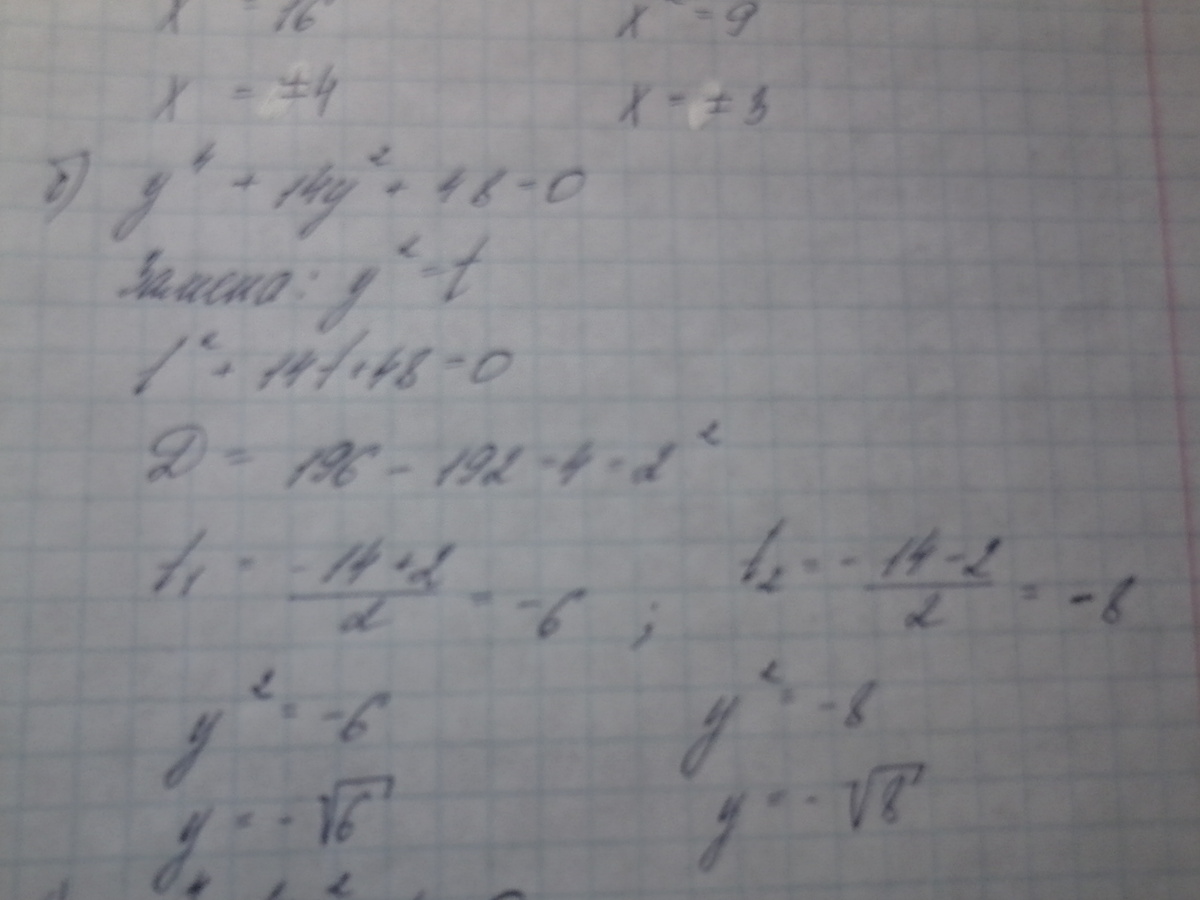 x = 16 x² = 9
x = ±4 x = ±3
б) y⁴ + 14y² + 48 = 0
Замена: y² = t
t² + 14t + 48 = 0
D = 196 - 192 = 4 = 2²
t₁ = (-14+2)/2 = -6 ; t₂ = -(14-2)/2 = -8
y² = -6 y² = -8
y = -√6 y = -√8